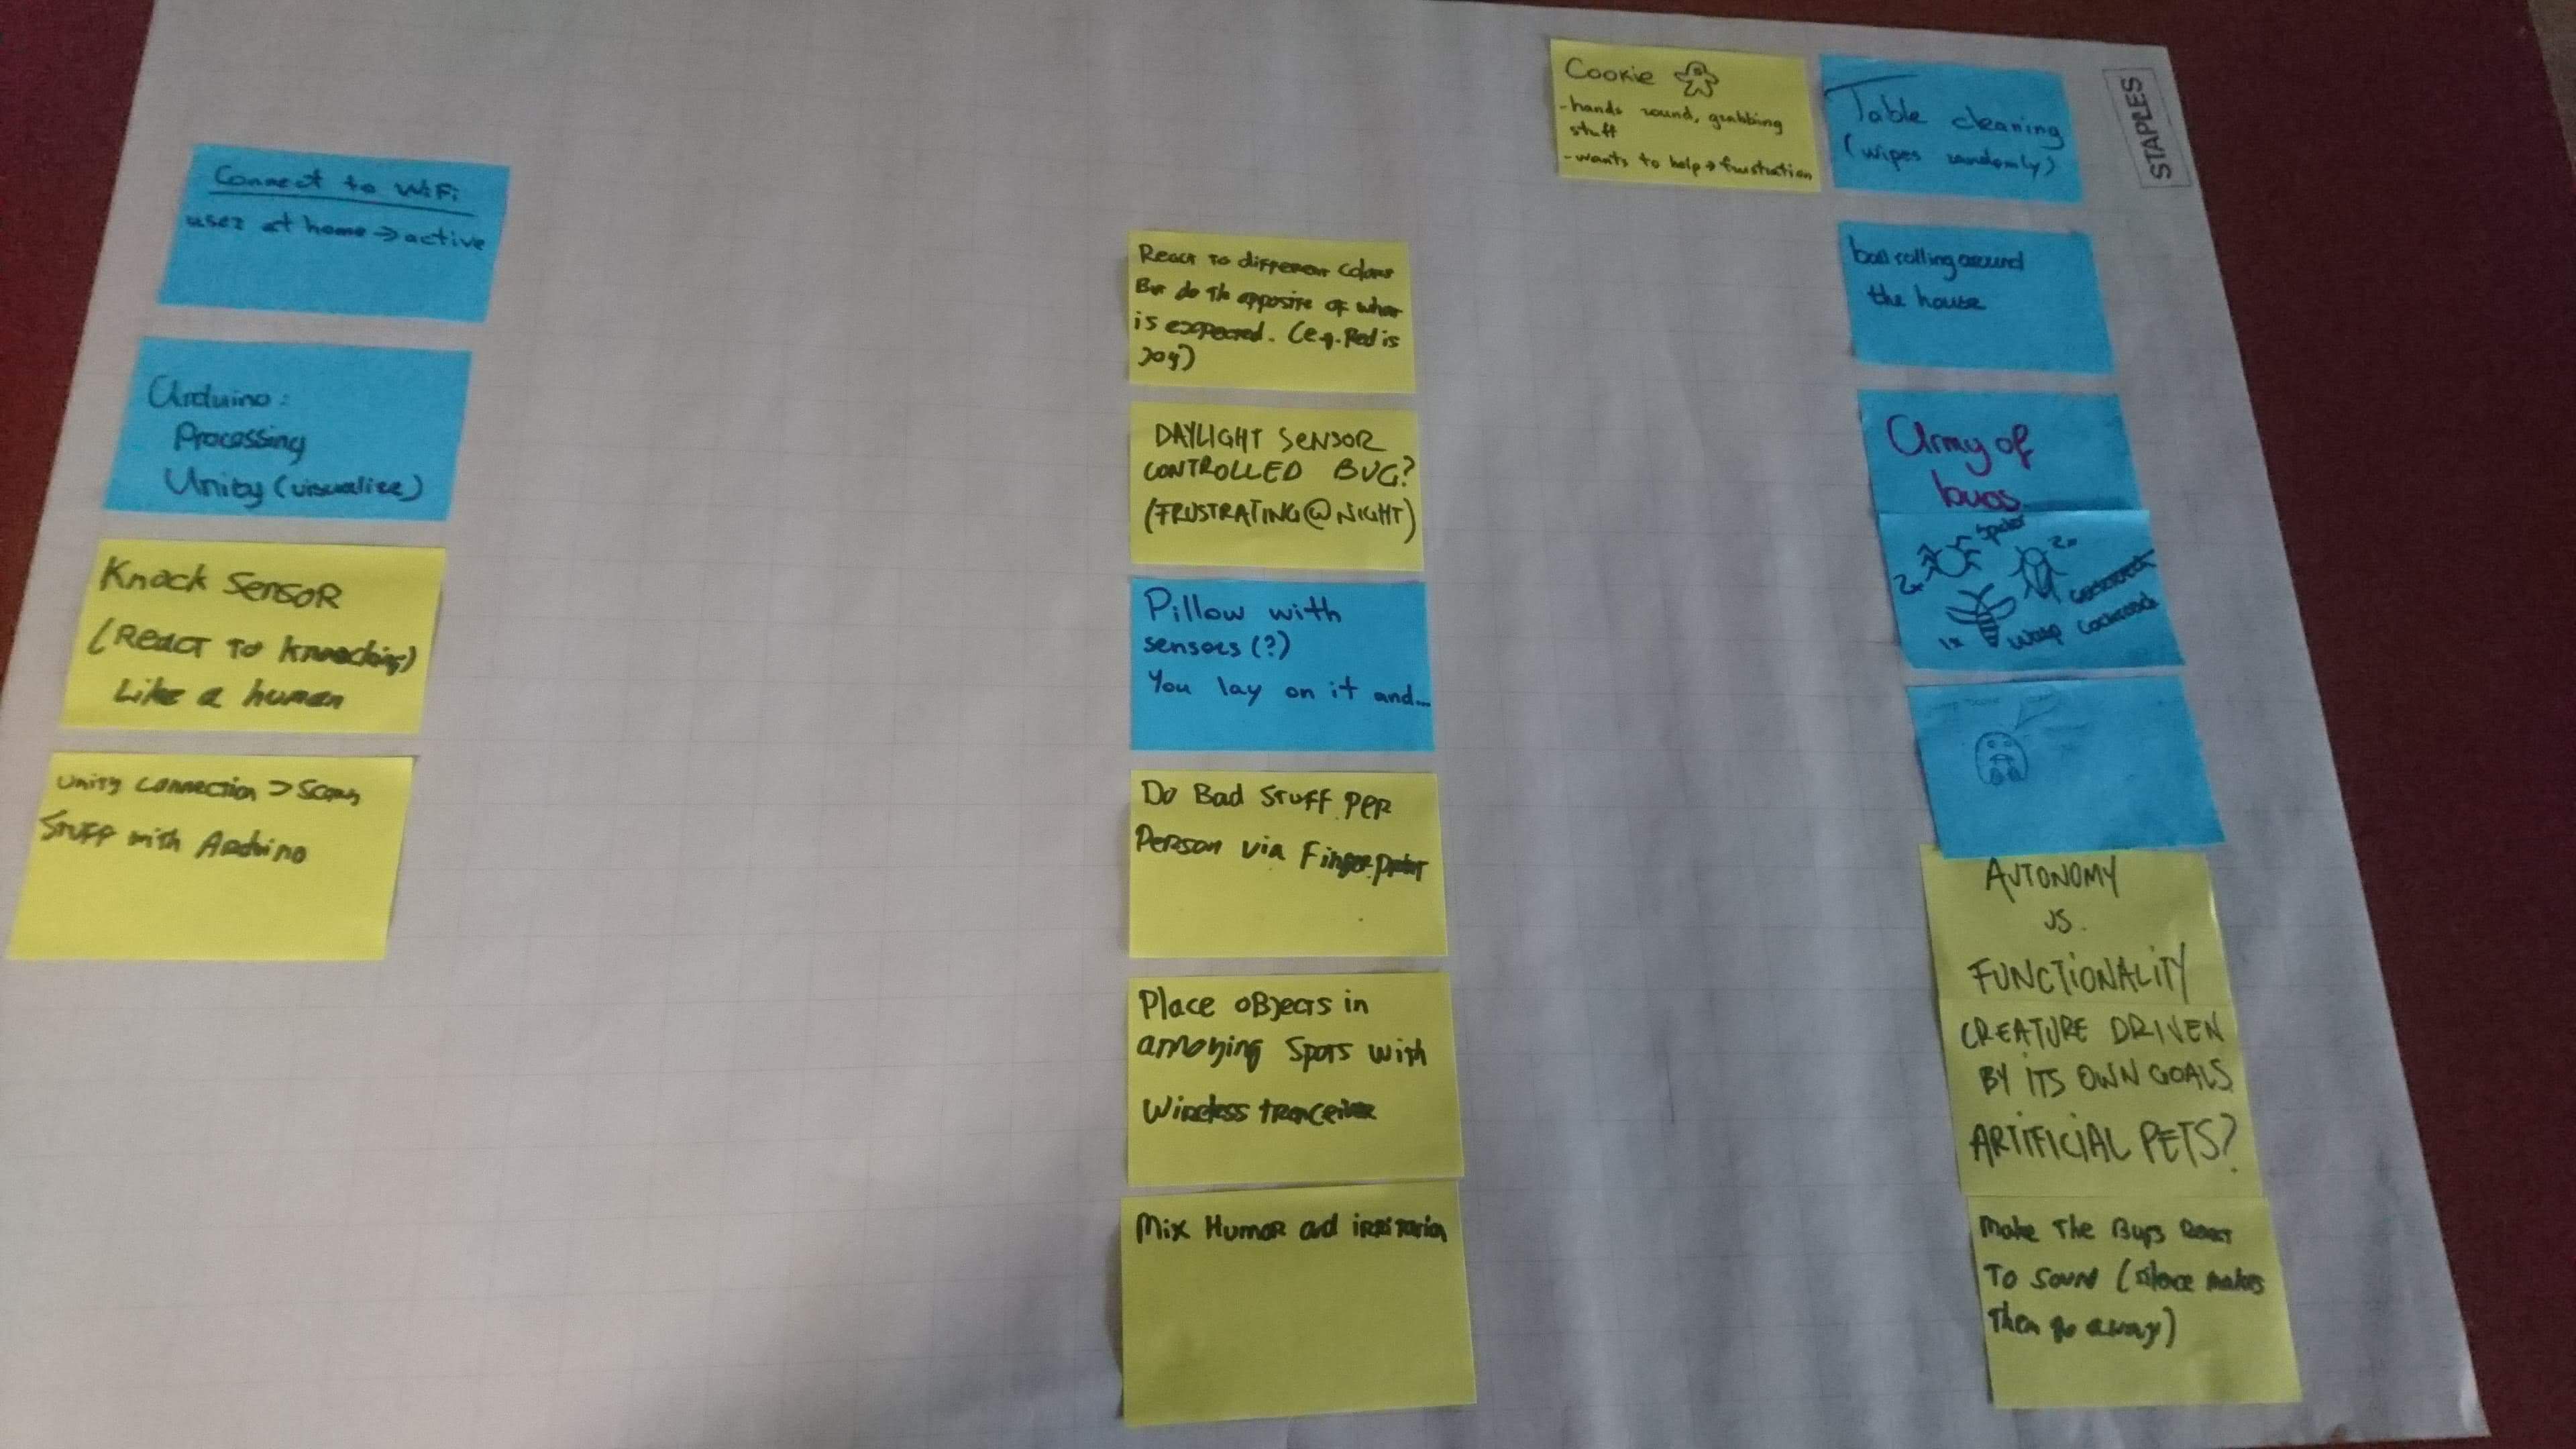 Connect to WiFi
user at home → active
Arduino:
Processing
Unity (visualize)
Knock Sensor
(React to knocking)
Like a human
Unity connection > Scary
Stuff with Arduino
React to different colors
But do the opposite of what
is expected. (e.g. Red is
Joy)
DAYLIGHT SENSOR
CONTROLLED BUG?
(FRUSTRATING @ NIGHT)
Pillow with
sensors (?)
You lay on it and...
Do Bad Stuff per
Person via Fingerprint
Place objects in
annoying Spots with
Wireless tranceiver
Mix Humor and irritation
Cookie
- hands round, grabbing
stuff
- wants to help → frustration
Table cleaning
(wipes randomly)
STAPLES
ball rolling around
the house
Army of
bugs
2x
2x
1x wasp cockroach
AUTONOMY
VS.
FUNCTIONALITY
CREATURE DRIVEN
BY ITS OWN GOALS
ARTIFICIAL PETS?
Make The Bugs React
To Sound (Silence makes
Them go away)